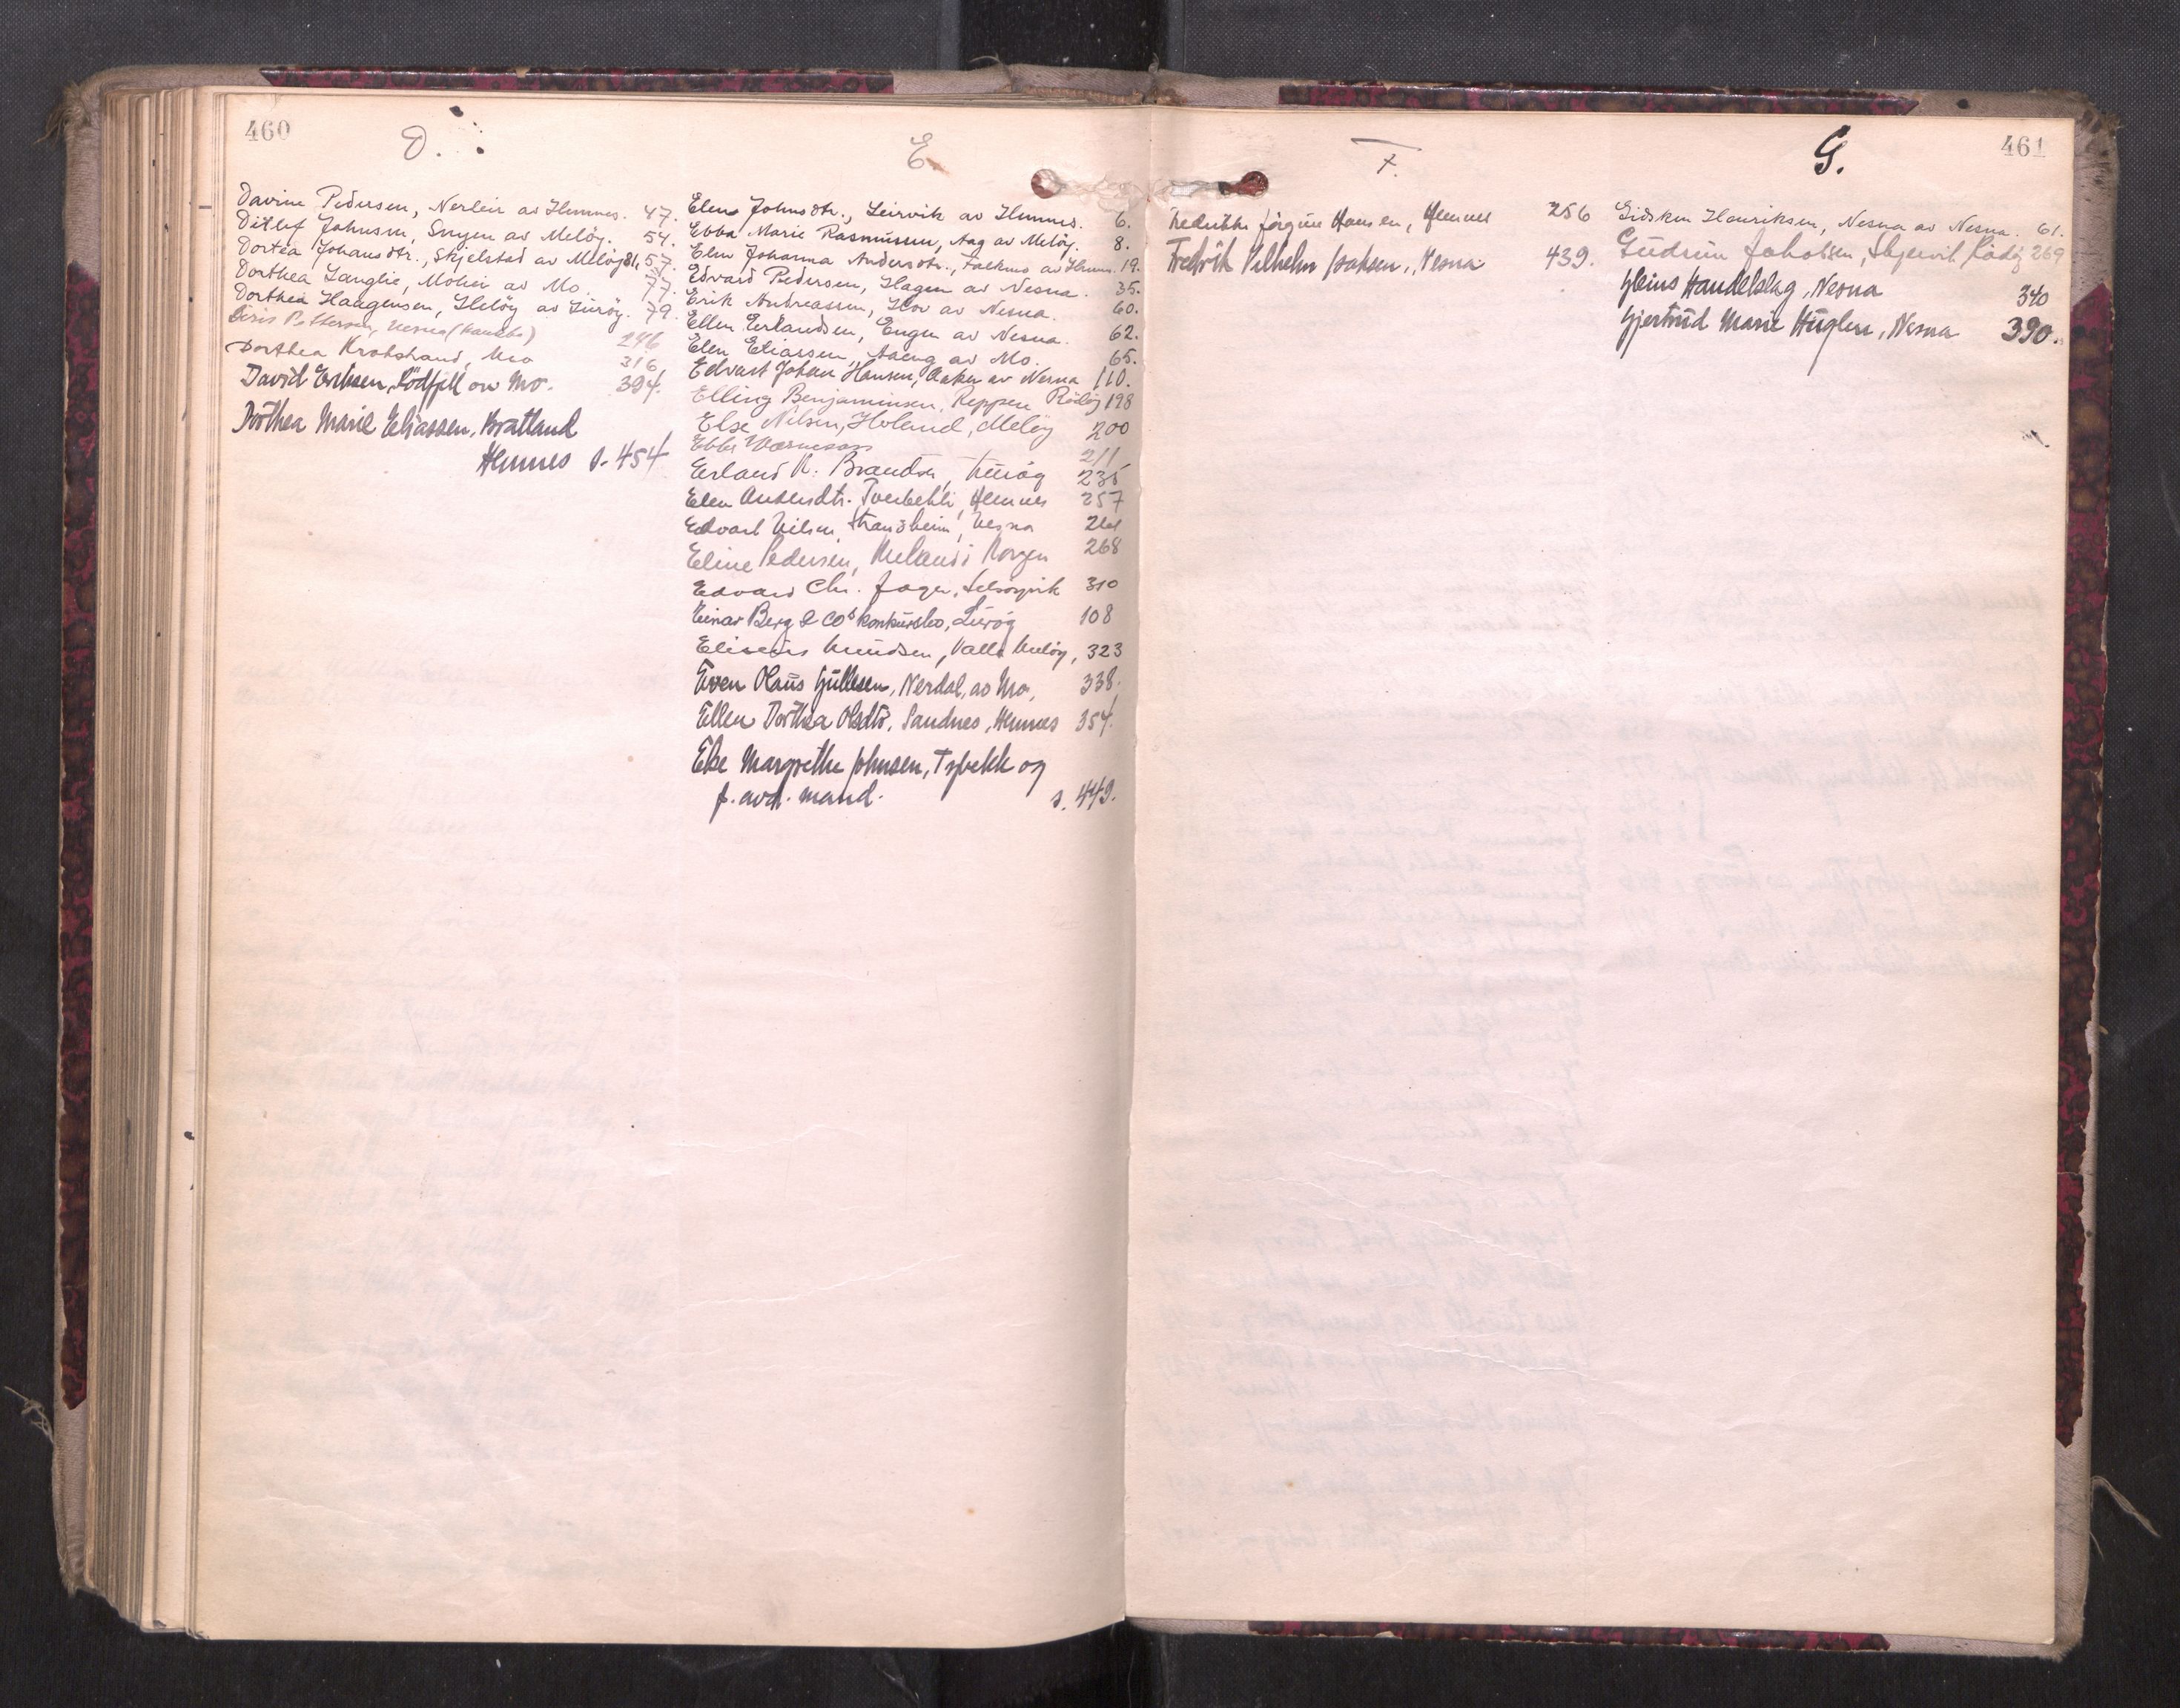 460
D.
Davine Pedersen, Nerleir av Hemnes. 47.
Ditlef Johnsen, Snyen av Meløy. 54.
Dortea Johansdtr., Skjelstad av Meløy 81, 57.
Dorthea Langlie, Mohei av Mo. 77.
Dorthea Haagensen, Selöy av Lurøy. 79.
Pettersen, Nesna 246
Dorthea Krokstrand, Mo 316
David Eriksen, Rödfjell av Mo. 394.
Dorthea Marie Eliassen, Bratland
Hemnes s. 454
E
Elen Johnsdtr., Leirvik av Hemnes. 6.
Ebba Marie Rasmussen, Aag av Meløy. 8.
Elen Johanna Andersdtr., av Hemn. 19.
Edvard Pedersen, Hagen av Nesna. 35.
Erik Andreassen, Hov av Nesna. 60.
Ellen Erlandsen, Engen av Nesna. 62.
Elen Eliassen, Aaeng av Mo. 65.
Edvart Johan Hansen, Aaker av Nesna 110.
Elling Benjaminsen, Reppen Rödöy 198
Else Nilsen, Holand, Meløy 200
Ebbe 211
Erland K. Brandsen, Lurøy 235
Elen Andersdtr. Tverbekli, Hemnes 257
Edvard Nilsen, Strandheim, Nesna 261
Eline Pedersen, i Korgen 268
Edvard Chr. Jager, Selsøyvik 310
Einar Berg & Co's konkursbo, Lurøy 108
Eliseus Knudsen, Valla Meløy, 323
Even Olaus Gullesen, Nerdal, av Mo, 338.
Ellen Dorthea Olsdtr. Sandnes, Hemnes 354.
Else Margrethe Johnsen, Tjbekk og
f. avd. mand. s. 449.
461
F.
Fredrikke Jørgine Hansen, Hemnes 256
Fredrik Vilhelm Isaksen, Nesna 439.
G.
Gidsken Henriksen, Nesna av Nesna. 61.
Gudrun Jakobsen, Rödöy 269
Gleins Handelslag, Nesna 340
Gjertrud Marie Huglen, Nesna 390.